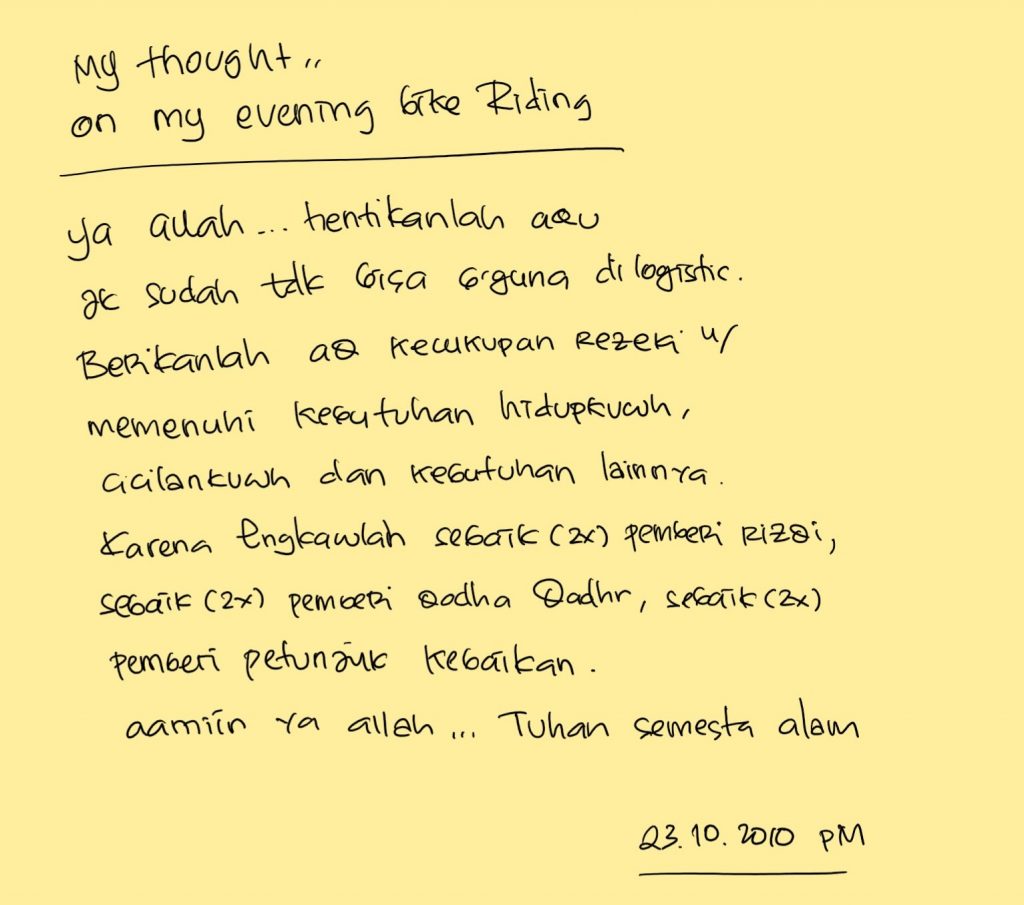 My thought..
on my evening bike Riding
ya allah... hentikanlah aQu
ak sudah tdk bisa b'guna di logistic.
Berikanlah aQ kecukupan Rezeki u/
memenuhi kebutuhan hidupkuwh,
cicilankuwh dan kebutuhan lainnya.
Karena Engkawlah sebaik (2x) pemberi Rizqi,
sebaik (2x) pemberi Qodha Qadhr, sebaik (2x)
pemberi petunjuk kebaikan.
aamiin ya allah... Tuhan semesta alam
23.10.2010 PM